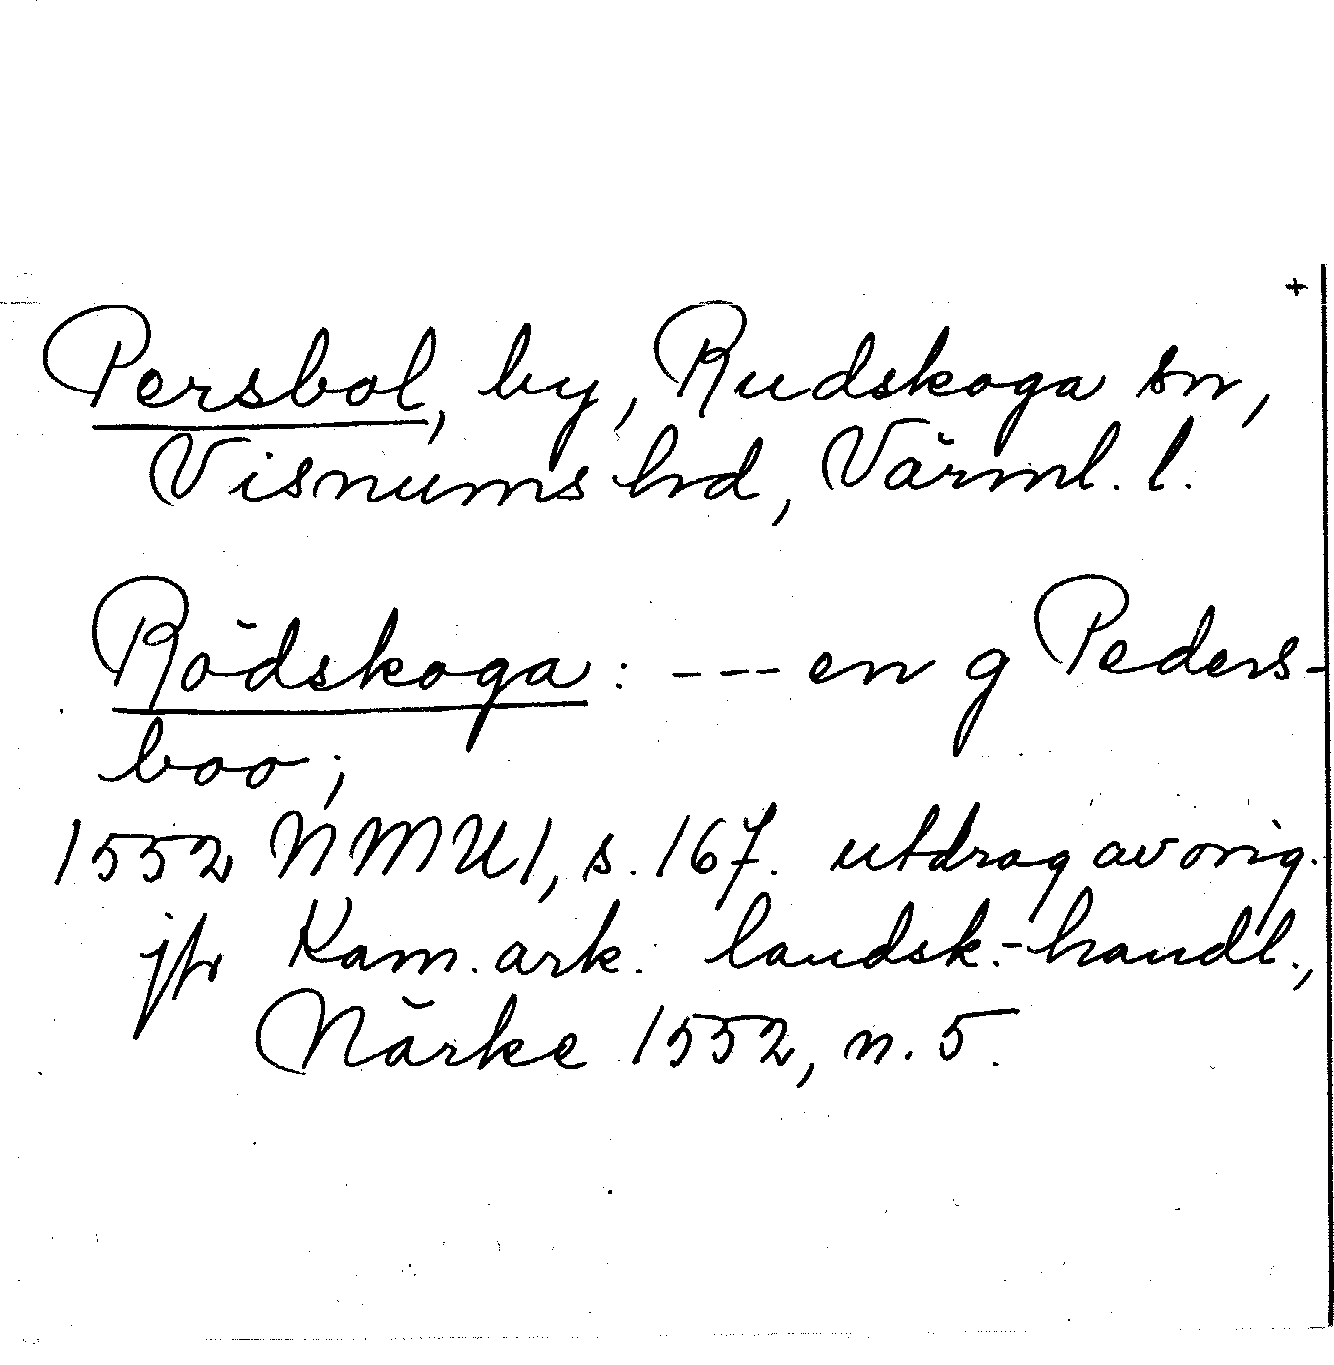 +
Persbol, by, Rudskoga sn,
Visnums hd, Värml. l.
Rödskoga: --- en g Peders-
boo;
1552 NMU1, s. 167. utdrag av orig.
jfr Kam. ark. landsk.-handl.,
Närke 1552, n. 5.